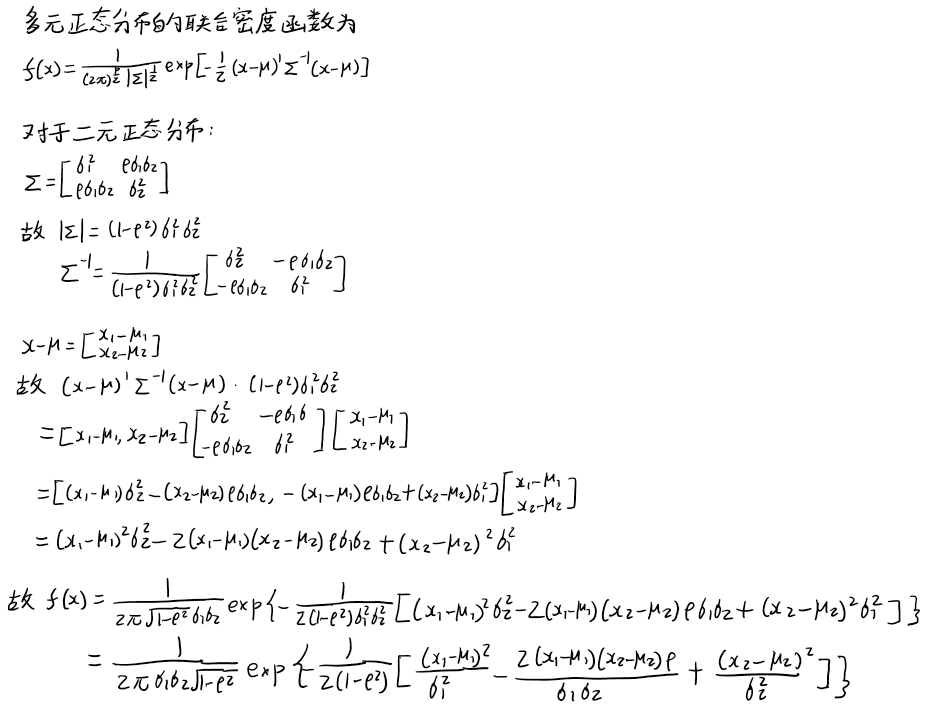 多元正态分布的联合密度函数为
f(x)=\frac{1}{(2π)^{\frac{p}{2}}|Σ|^{\frac{1}{2}}}exp[-\frac{1}{2}(x-μ)'Σ^{-1}(x-μ)]
对于二元正态分布:
Σ=\begin{bmatrix}σ_1^2 & ρσ_1σ_2\\ρσ_1σ_2 & σ_2^2\end{bmatrix}
故 |Σ|=(1-ρ^2)σ_1^2σ_2^2
Σ^{-1}=\frac{1}{(1-ρ^2)σ_1^2σ_2^2}\begin{bmatrix}σ_2^2 & -ρσ_1σ_2\\-ρσ_1σ_2 & σ_1^2\end{bmatrix}
x-μ=\begin{bmatrix}x_1-μ_1\\x_2-μ_2\end{bmatrix}
故 (x-μ)'Σ^{-1}(x-μ)·(1-ρ^2)σ_1^2σ_2^2
=[x_1-μ_1,x_2-μ_2]\begin{bmatrix}σ_2^2 & -ρσ_1σ\\-ρσ_1σ_2 & σ_1^2\end{bmatrix}\begin{bmatrix}x_1-μ_1\\x_2-μ_2\end{bmatrix}
=[(x_1-μ_1)σ_2^2-(x_2-μ_2)ρσ_1σ_2,-(x_1-μ_1)ρσ_1σ_2+(x_2-μ_2)σ_1^2]\begin{bmatrix}x_1-μ_1\\x_2-μ_2\end{bmatrix}
=(x_1-μ_1)^2σ_2^2-2(x_1-μ_1)(x_2-μ_2)ρσ_1σ_2+(x_2-μ_2)^2σ_1^2
故 f(x)=\frac{1}{2π\sqrt{1-ρ^2}σ_1σ_2}exp{-\frac{1}{2(1-ρ^2)σ_1^2σ_2^2}[(x_1-μ_1)^2σ_2^2-2(x_1-μ_1)(x_2-μ_2)ρσ_1σ_2+(x_2-μ_2)^2σ_1^2]}
=\frac{1}{2πσ_1σ_2\sqrt{1-ρ^2}}exp{-\frac{1}{2(1-ρ^2)}[\frac{(x_1-μ_1)^2}{σ_1^2}-\frac{2(x_1-μ_1)(x_2-μ_2)ρ}{σ_1σ_2}+\frac{(x_2-μ_2)^2}{σ_2^2}]}